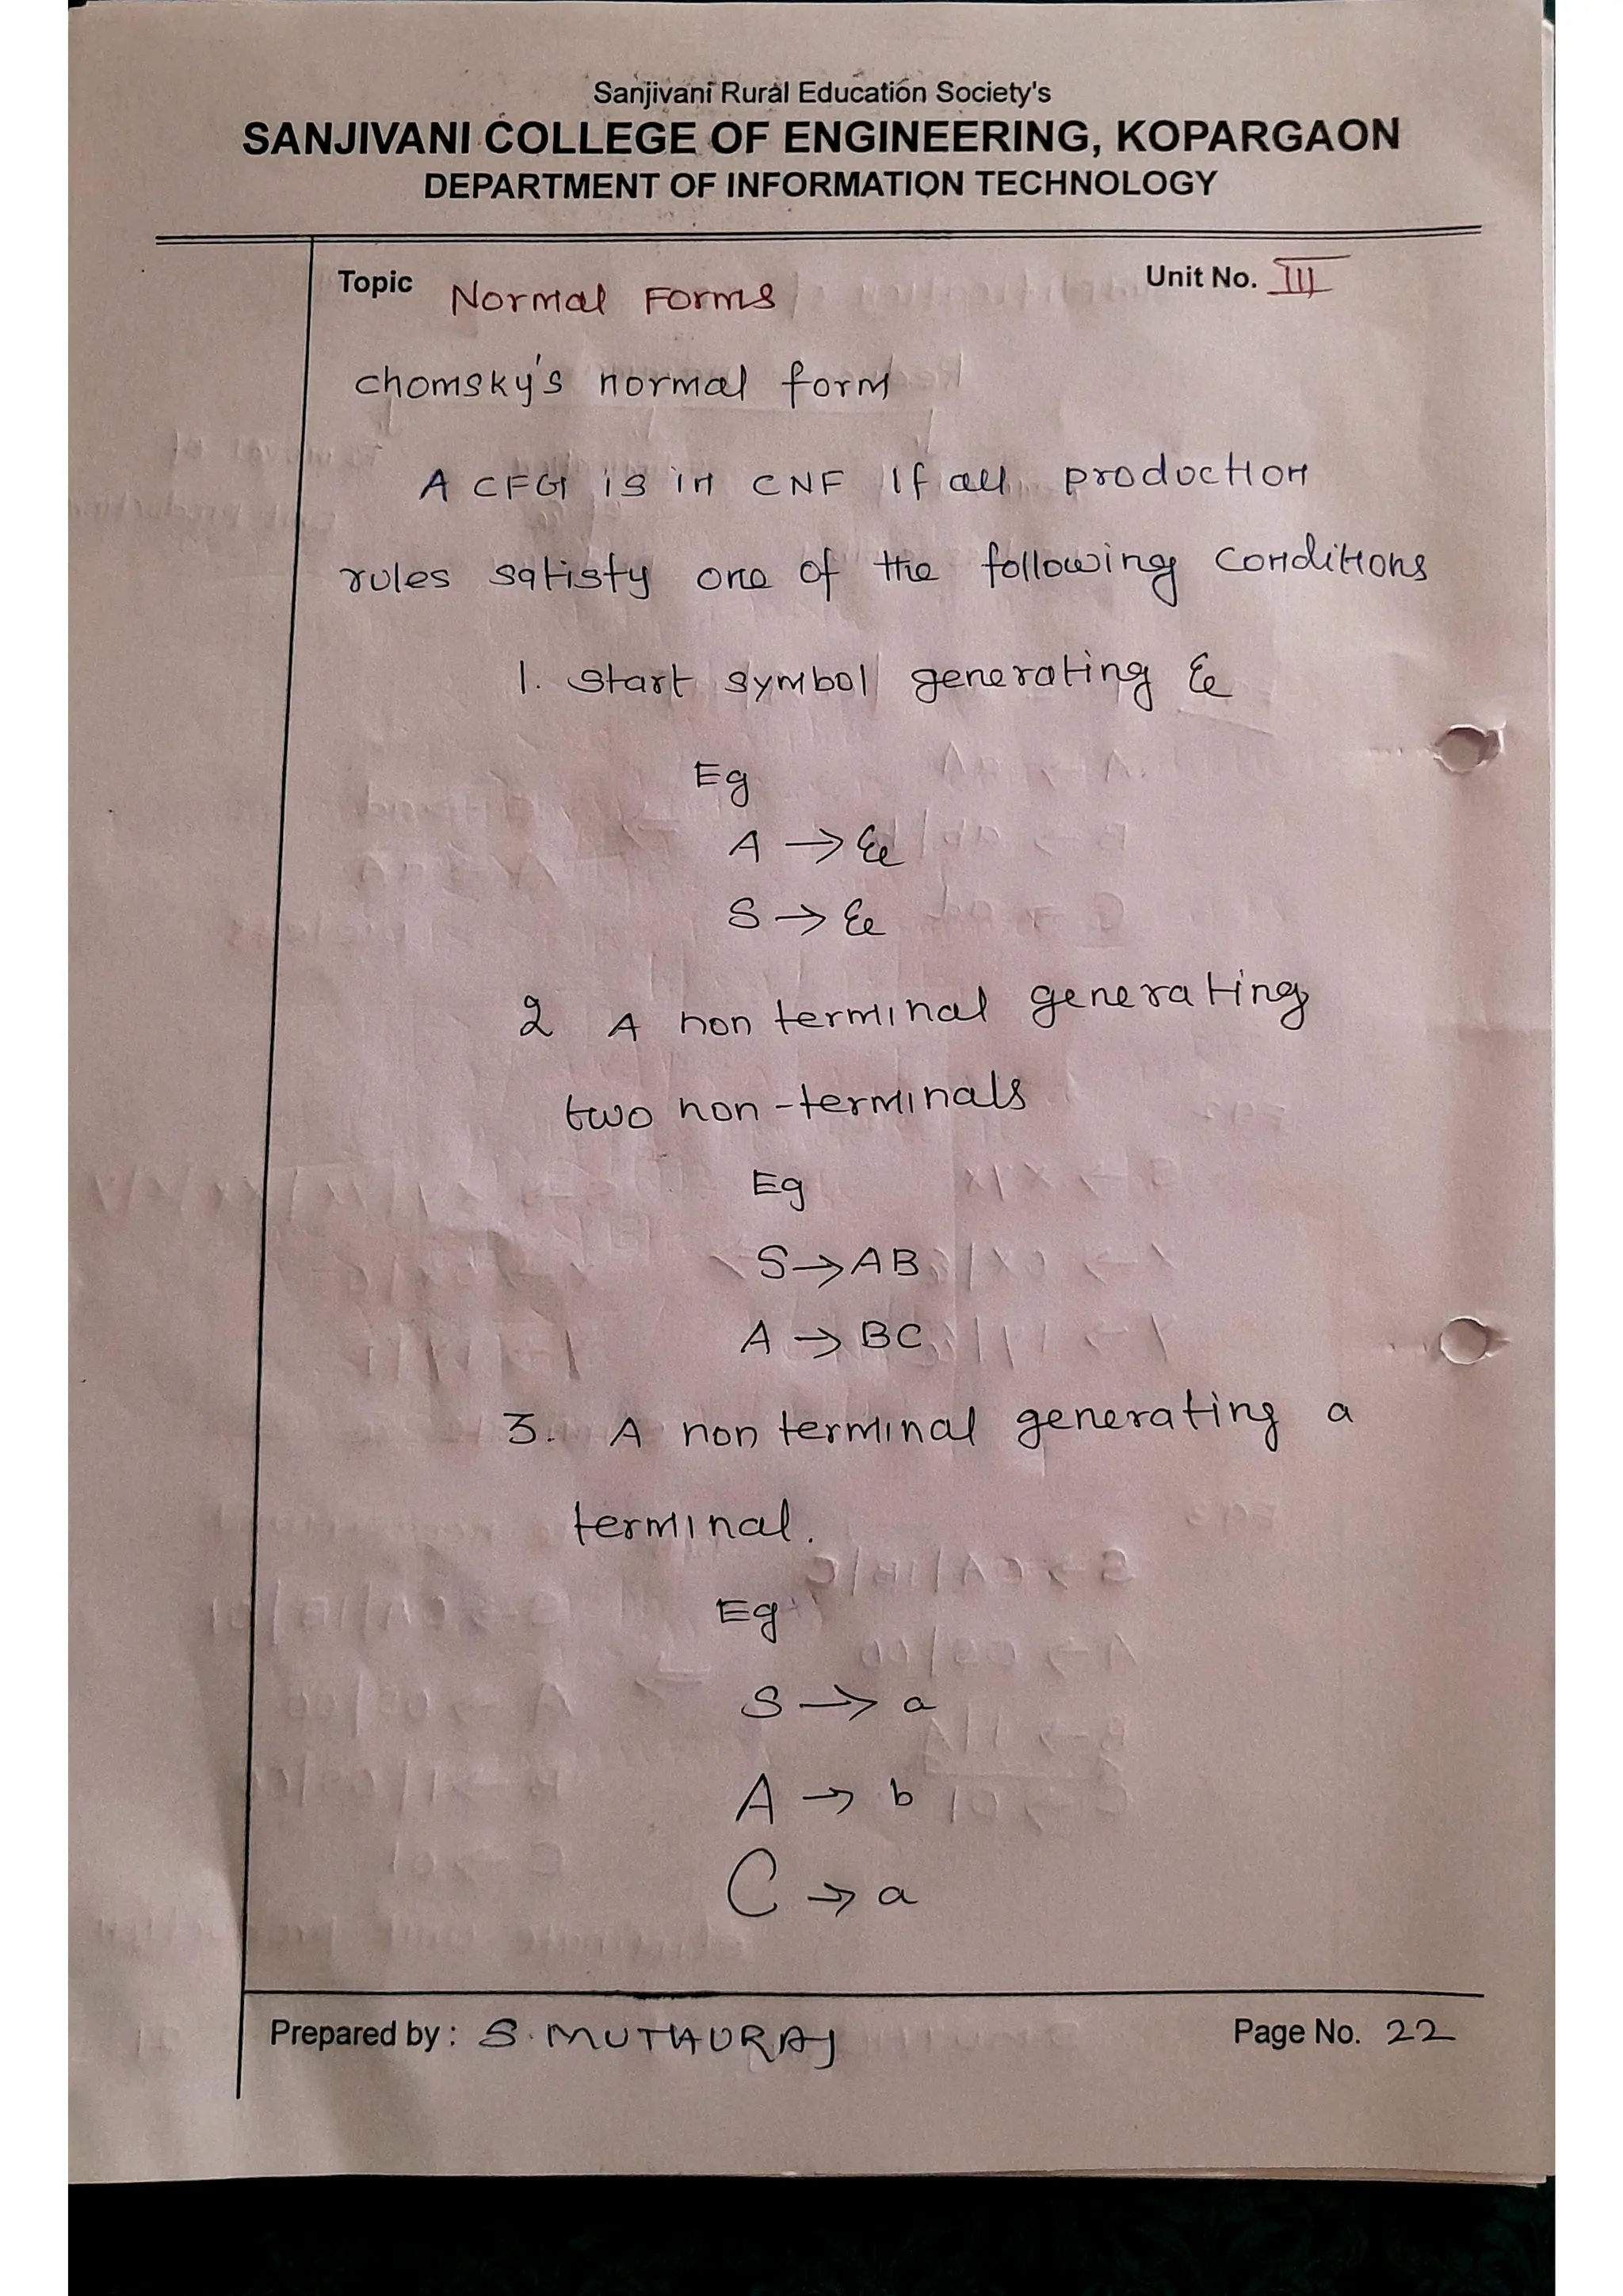 Sanjivani Rural Education Society's
SANJIVANI COLLEGE OF ENGINEERING, KOPARGAON
DEPARTMENT OF INFORMATION TECHNOLOGY
Topic Normal Forms Unit No. III
chomsky's normal form
A CFG is in CNF If all production
rules satisfy one of the following conditions
1. Start symbol generating ε
Eg
A → ε
S → ε
2 A non terminal generating
two non-terminals
Eg
S → AB
A → BC
3. A non terminal generating a
terminal.
Eg
S → a
A → b
C → a
Prepared by : S. MUTHURAJ Page No. 22